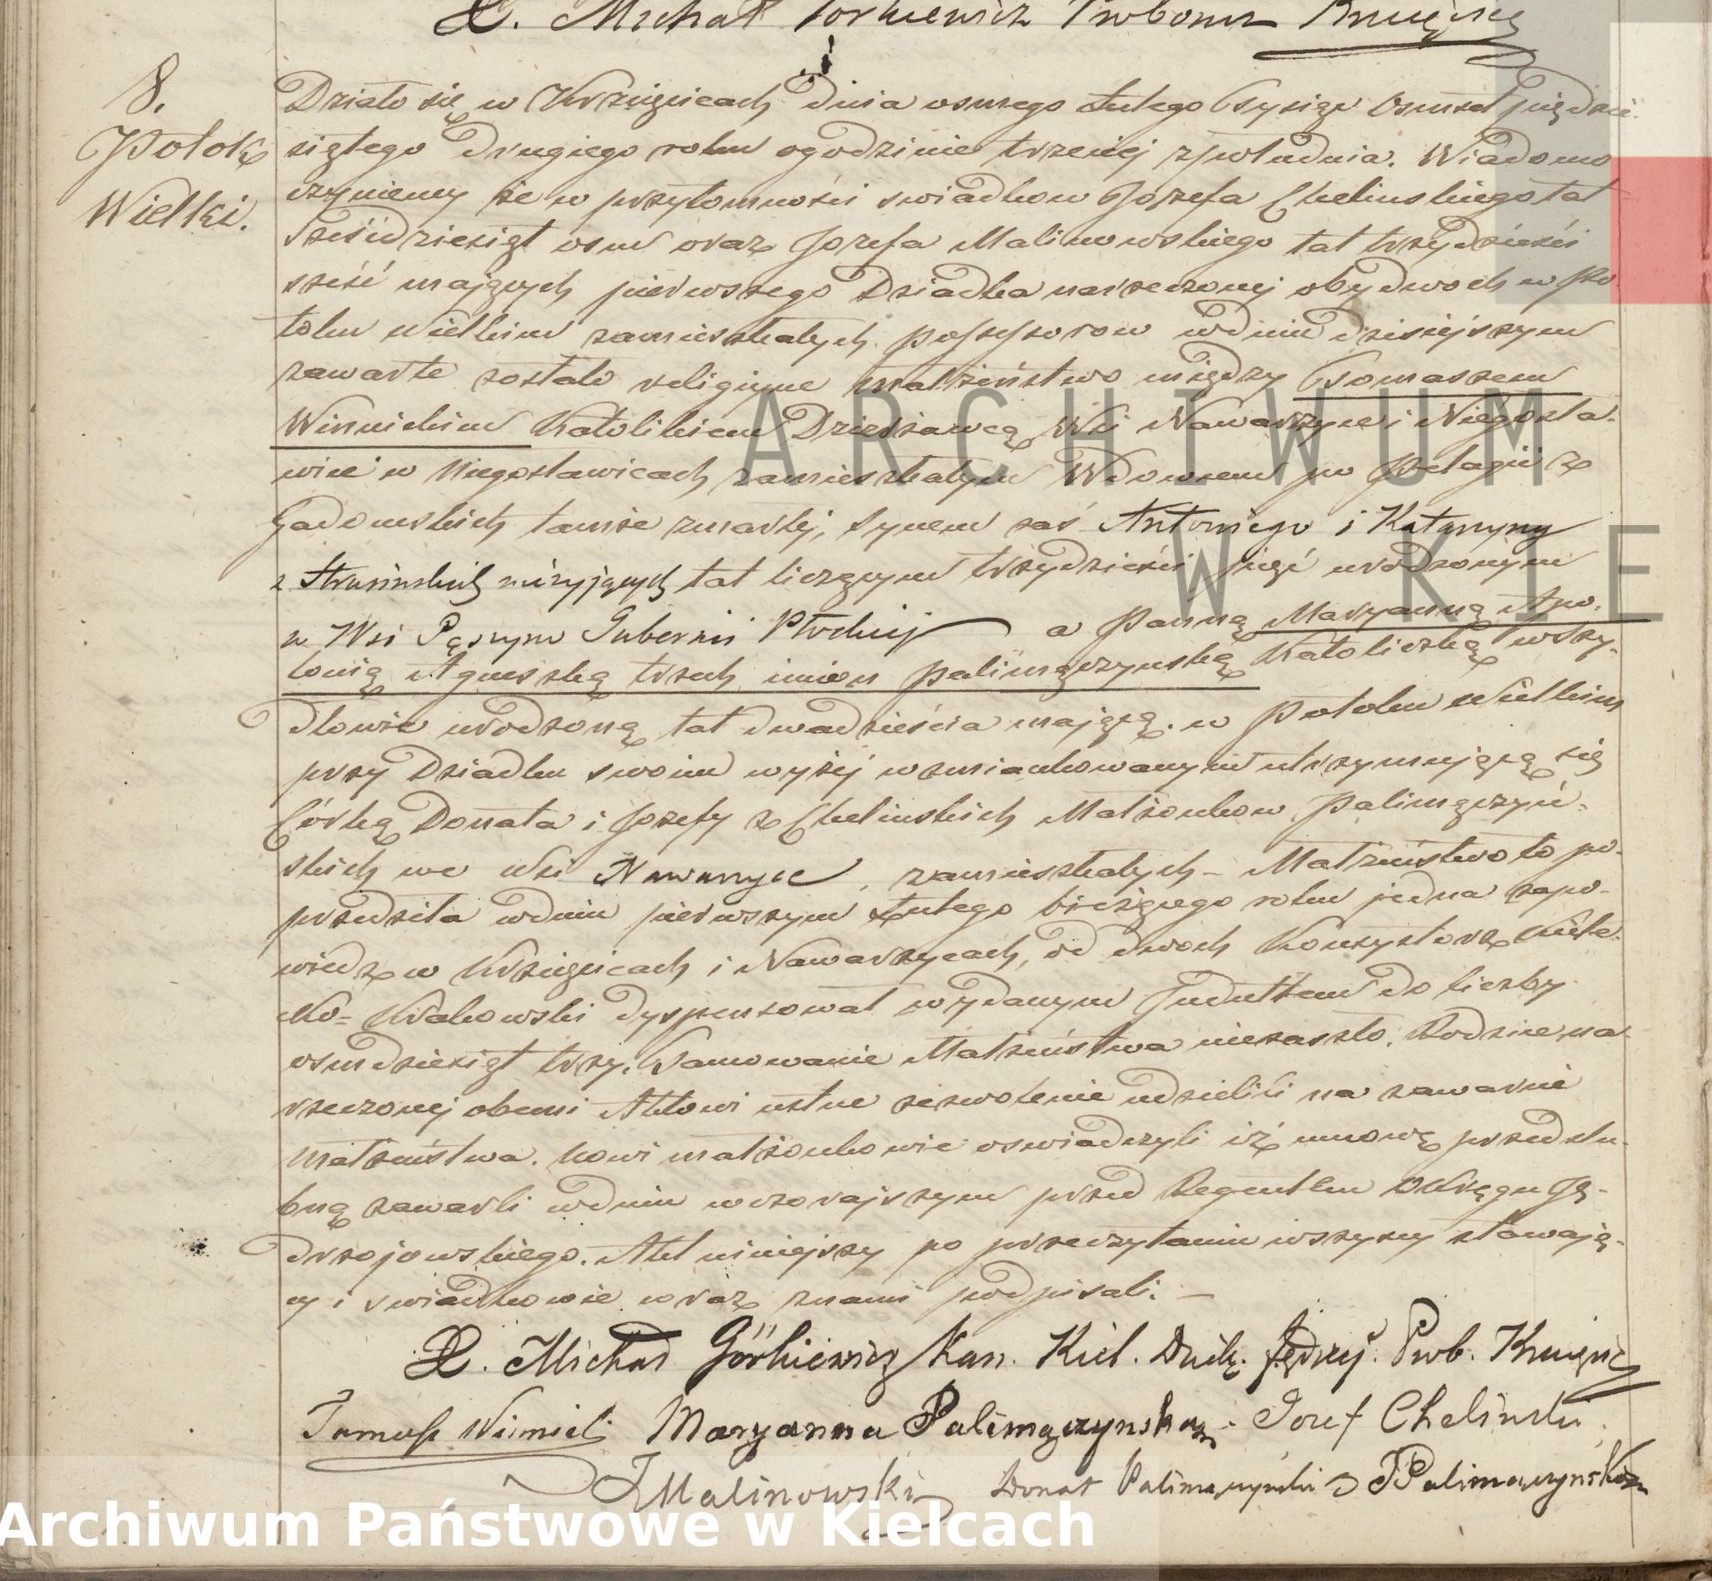 X. Michał Górkiewicz Proboszcz Krzcięcicz
8.
Potok
Wielki.
Działo się w Krzcięcicach dnia osmego Lutego Tysiąc Osmset pięćdzie-
siątego drugiego roku o godzinie trzeciej z południa. Wiadomo
czyniemy że w przytomności swiadkow Józefa Chelinskiego lat
sześćdziesiąt osm oraz Jozefa Malinowskiego lat trzydzieści
sześć mających pierwszego Dziadka narzeczonej obydwoch w Po
toku wielkim zamieszkałych possessorow w dniu dzisiejszym
zawarte zostało religijne małżeństwo między Tomaszem
Winnickim Katolikiem Dzierżawcą Wsi Nawarzyce i Niegosła-
wice w Niegosławicach zamieszkałym Wdowcem po Pelagii z
Gadomskich tamże zmarłej, synem zaś Antoniego i Katarzyny
z Strusińskich nieżyjących lat liczącym trzydzieści pięć urodzonym
w Wsi Pąszym Gubernii Płockiej a Panną Maryanną Apo-
lonią Agnieszką trzech imion Palimączynską Katoliczką w Szy-
dłowie urodzoną lat dwadzieścia mającą. w Potoku wielkim
przy Dziadku swoim wyżej wzmiankowanym utrzymującą się
Córką Donata i Jozefy z Chelinskich Małżonkow Palimączyń-
skich we Wsi Nawarzyce, zamieszkałych – Małżeństwo to po-
przedziła w dniu pierwszym Lutego bieżącego roku jedna zapo-
wiedz w Krzcięcicach i Nawarzycach, od dwoch Konsystorz Kiele-
cko= Krakowski dyspensował wydanym Indultem do liczby
osmdziesiąt trzy. Tamowanie Małżeństwa nie zaszło. Rodzice na-
rzeczonej obecni Aktowi ustne zezwolenie udzielili na zawarcie
małżeństwa. Nowi małżonkowie oswiadczyli iż umowę przedślu-
bną zawarli w dniu wczorajszym przed Regentem Okręgu Ję-
drzejowskiego. Akt niniejszy po przeczytaniu wszyscy stawają-
cy i swiadkowie wraz z nami podpisali. –
X. Michał Górkiewicz Kan. Kiel. Dziek. Jędrzej. Prob. Krzcięcic
Tomasz Winnicki Maryanna Palimączynska Jozef Chelinski
J Malinowski Donat Palimączynski J Palimączyńska
ARCHIWUM
W KIE
Archiwum Państwowe w Kielcach